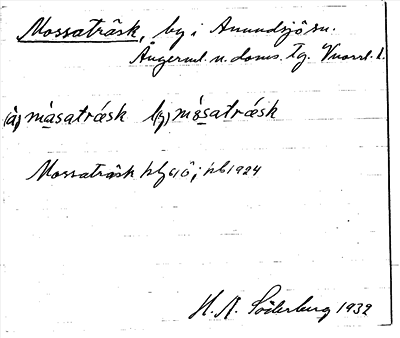 Mossaträsk, by i Anundsjö sn.
Ångerml. n. doms. Tg.
(a) måsatræsk b) måsatræsk
Mossaträsk 1924
H. A. Söderberg 1932